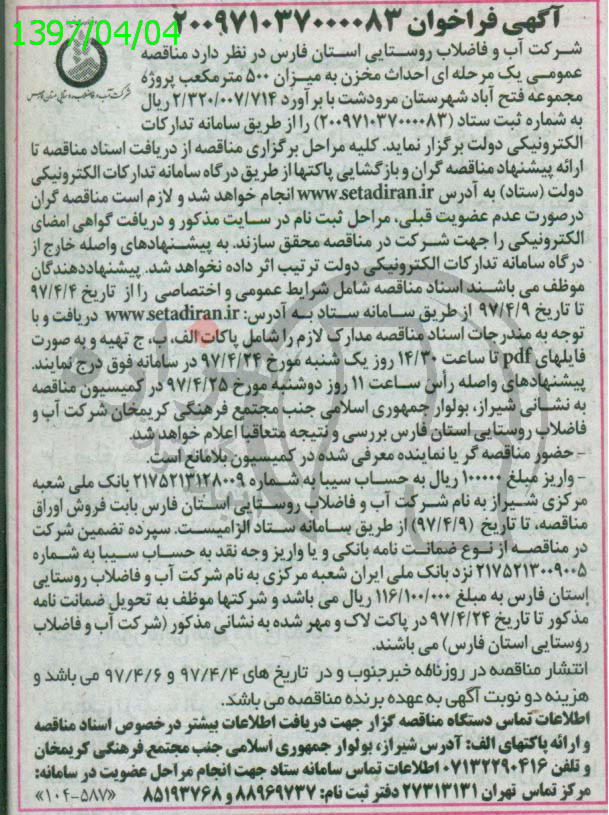 آگهی فراخوان ۲۰۰۹۷۱۰۳۷۰۰۰۰۸۳
1397/04/04
شرکت آب و فاضلاب روستایی استان فارس در نظر دارد مناقصه
عمومی یک مرحله ای احداث مخزن به میزان ۵۰۰ مترمکعب پروژه
مجموعه فتح آباد شهرستان مرودشت با برآورد ۲/۳۲۰/۰۰۷/۷۱۴ ریال
به شماره ثبت ستاد (۲۰۰۹۷۱۰۳۷۰۰۰۰۸۳) را از طریق سامانه تدارکات
الکترونیکی دولت برگزار نماید. کلیه مراحل برگزاری مناقصه از دریافت اسناد مناقصه تا
ارائه پیشنهاد مناقصه گران و بازگشایی پاکتها از طریق درگاه سامانه تدارکات الکترونیکی
دولت (ستاد) به آدرس www.setadiran.ir انجام خواهد شد و لازم است مناقصه گران
درصورت عدم عضویت قبلی، مراحل ثبت نام در سایت مذکور و دریافت گواهی امضای
الکترونیکی را جهت شرکت در مناقصه محقق سازند. به پیشنهادهای واصله خارج از
درگاه سامانه تدارکات الکترونیکی دولت ترتیب اثر داده نخواهد شد. پیشنهاددهندگان
موظف می باشند اسناد مناقصه شامل شرایط عمومی و اختصاصی را از تاریخ ۹۷/۴/۴
تا تاریخ ۹۷/۴/۹ از طریق سامانه ستاد به آدرس: www.setadiran.ir دریافت و با
توجه به مندرجات اسناد مناقصه مدارک لازم را شامل پاکات الف، ب، ج تهیه و به صورت
فایلهای pdf تا ساعت ۱۴/۳۰ روز یک شنبه مورخ ۹۷/۴/۲۴ در سامانه فوق درج نمایند.
پیشنهادهای واصله رأس ساعت ۱۱ روز دوشنبه مورخ ۹۷/۴/۲۵ در کمیسیون مناقصه
به نشانی شیراز، بولوار جمهوری اسلامی جنب مجتمع فرهنگی کریمخان شرکت آب و
فاضلاب روستایی استان فارس بررسی و نتیجه متعاقبا اعلام خواهد شد.
- حضور مناقصه گر یا نماینده معرفی شده در کمیسیون بلامانع است.
- واریز مبلغ ۱۰۰۰۰۰۰ ریال به حساب سیبا به شماره ۲۱۷۵۲۱۳۱۲۸۰۰۹ بانک ملی شعبه
مرکزی شیراز به نام شرکت آب و فاضلاب روستایی استان فارس بابت فروش اوراق
مناقصه، تا تاریخ (۹۷/۴/۹) از طریق سامانه ستاد الزامیست. سپرده تضمین شرکت
در مناقصه از نوع ضمانت نامه بانکی و یا واریز وجه نقد به حساب سیبا به شماره
۲۱۷۵۲۱۳۰۰۹۰۰۵ نزد بانک ملی ایران شعبه مرکزی به نام شرکت آب و فاضلاب روستایی
استان فارس به مبلغ ۱۱۶/۱۰۰/۰۰۰ ریال می باشد و شرکتها موظف به تحویل ضمانت نامه
مذکور تا تاریخ ۹۷/۴/۲۴ در پاکت لاک و مهر شده به نشانی مذکور (شرکت آب و فاضلاب
روستایی استان فارس) می باشند.
انتشار مناقصه در روزنامه خبرجنوب و در تاریخ های ۹۷/۴/۴ و ۹۷/۴/۶ می باشد و
هزینه دو نوبت آگهی به عهده برنده مناقصه می باشد.
اطلاعات تماس دستگاه مناقصه گزار جهت دریافت اطلاعات بیشتر درخصوص اسناد مناقصه
و ارائه پاکتهای الف: آدرس شیراز، بولوار جمهوری اسلامی جنب مجتمع فرهنگی کریمخان
و تلفن ۰۷۱۳۲۲۹۰۴۱۶ اطلاعات تماس سامانه ستاد جهت انجام مراحل عضویت در سامانه:
مرکز تماس تهران ۲۷۳۱۳۱۳۱ دفتر ثبت نام: ۸۸۹۶۹۷۳۷ و ۸۵۱۹۳۷۶۸ «۱۰۴-۵۸۷»